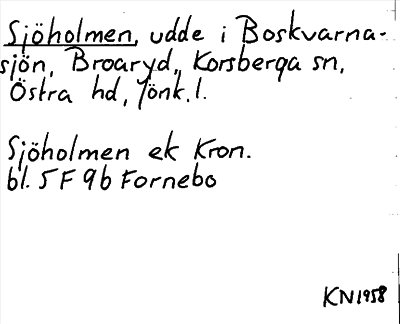 Sjöholmen, udde i Boskvarna-
sjön, Broaryd, Korsberga sn,
Östra hd, Jönk. l.
Sjöholmen ek Kron.
bl. 5F 9b Fornebo
KN1958